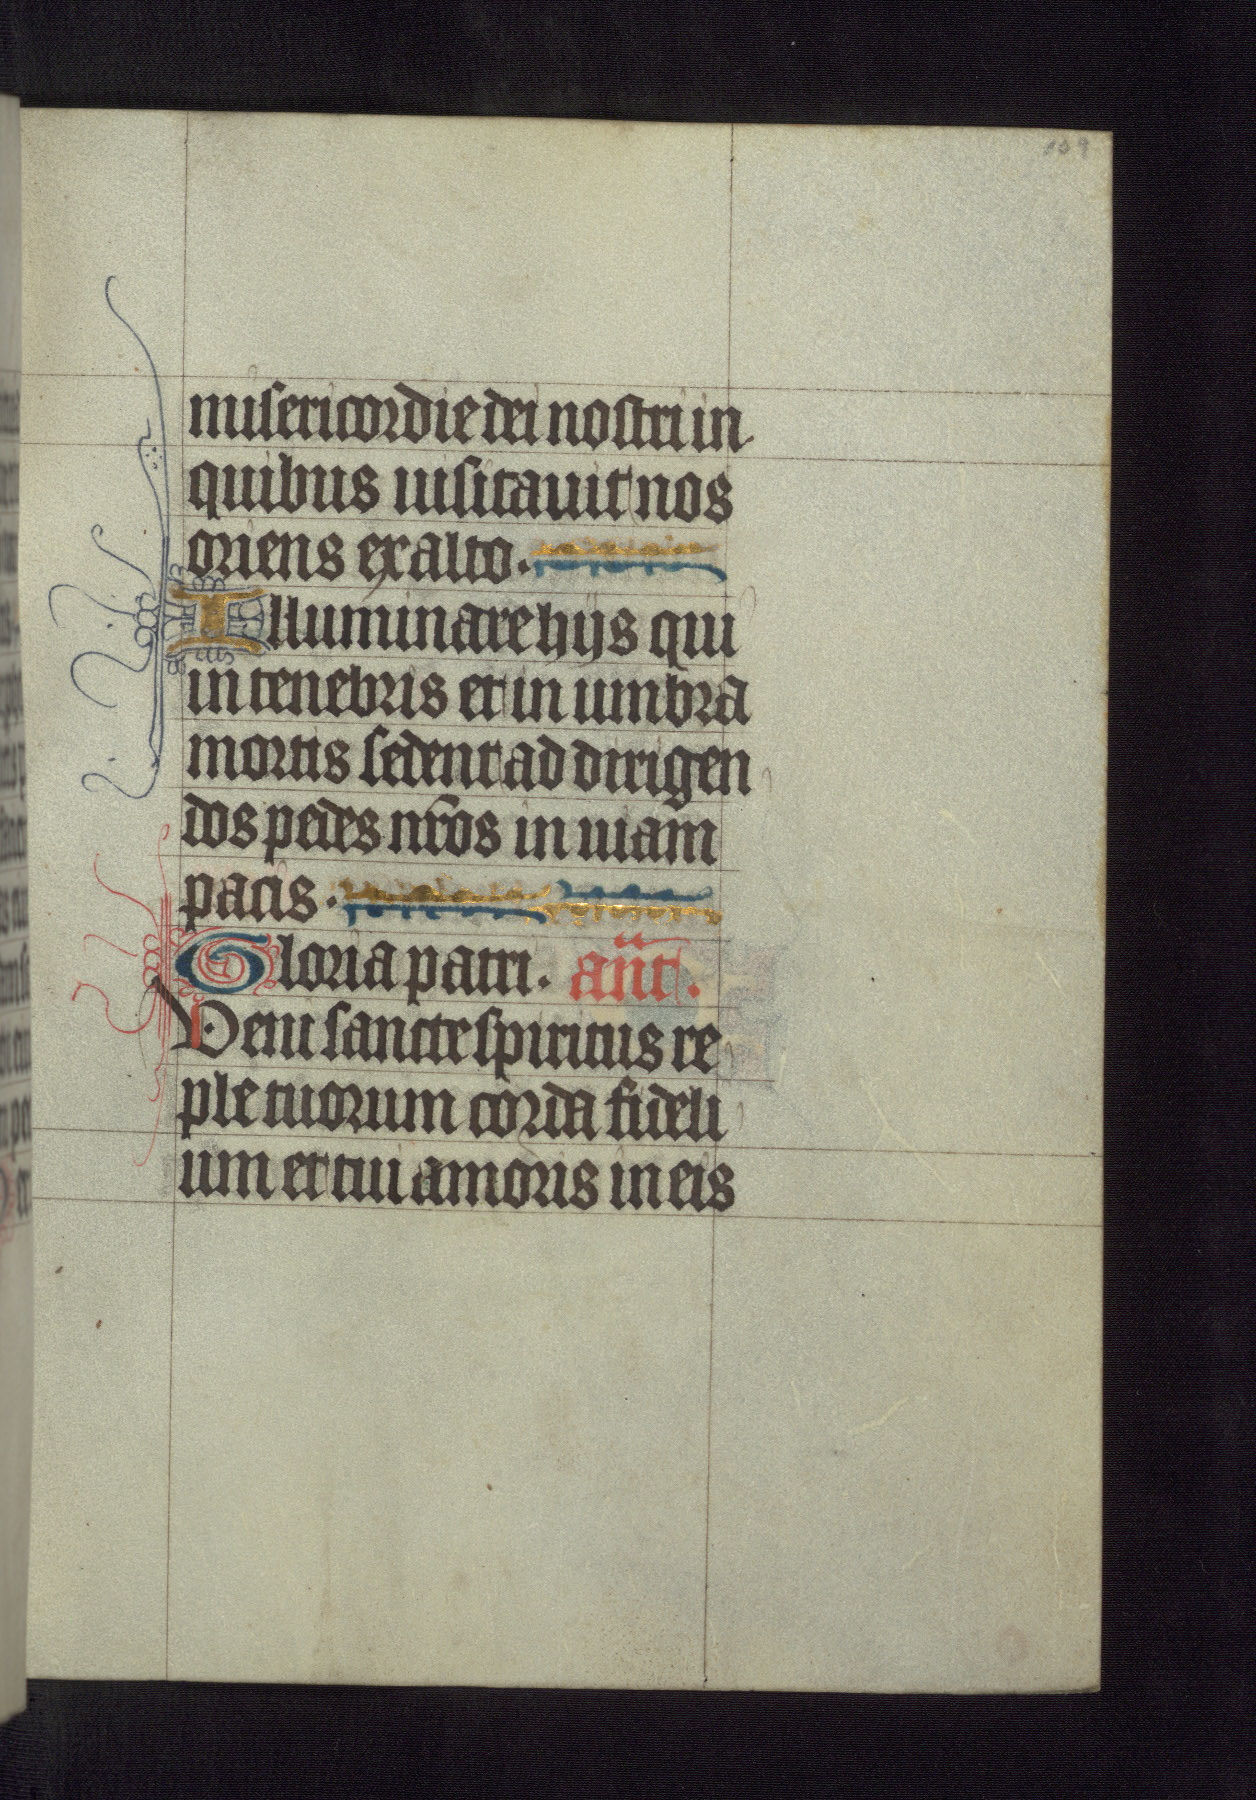 109
misericordie dei nostri in
quibus uisitauit nos
oriens ex alto.
Illuminare hijs qui
in tenebris et in umbra
mortis sedent ad dirigen
dos pedes nr̄os in uiam
pacis.
Gloria patri. an̄t.
Veni sancte spiritus re
ple tuorum corda fideli
um et tui amoris in eis